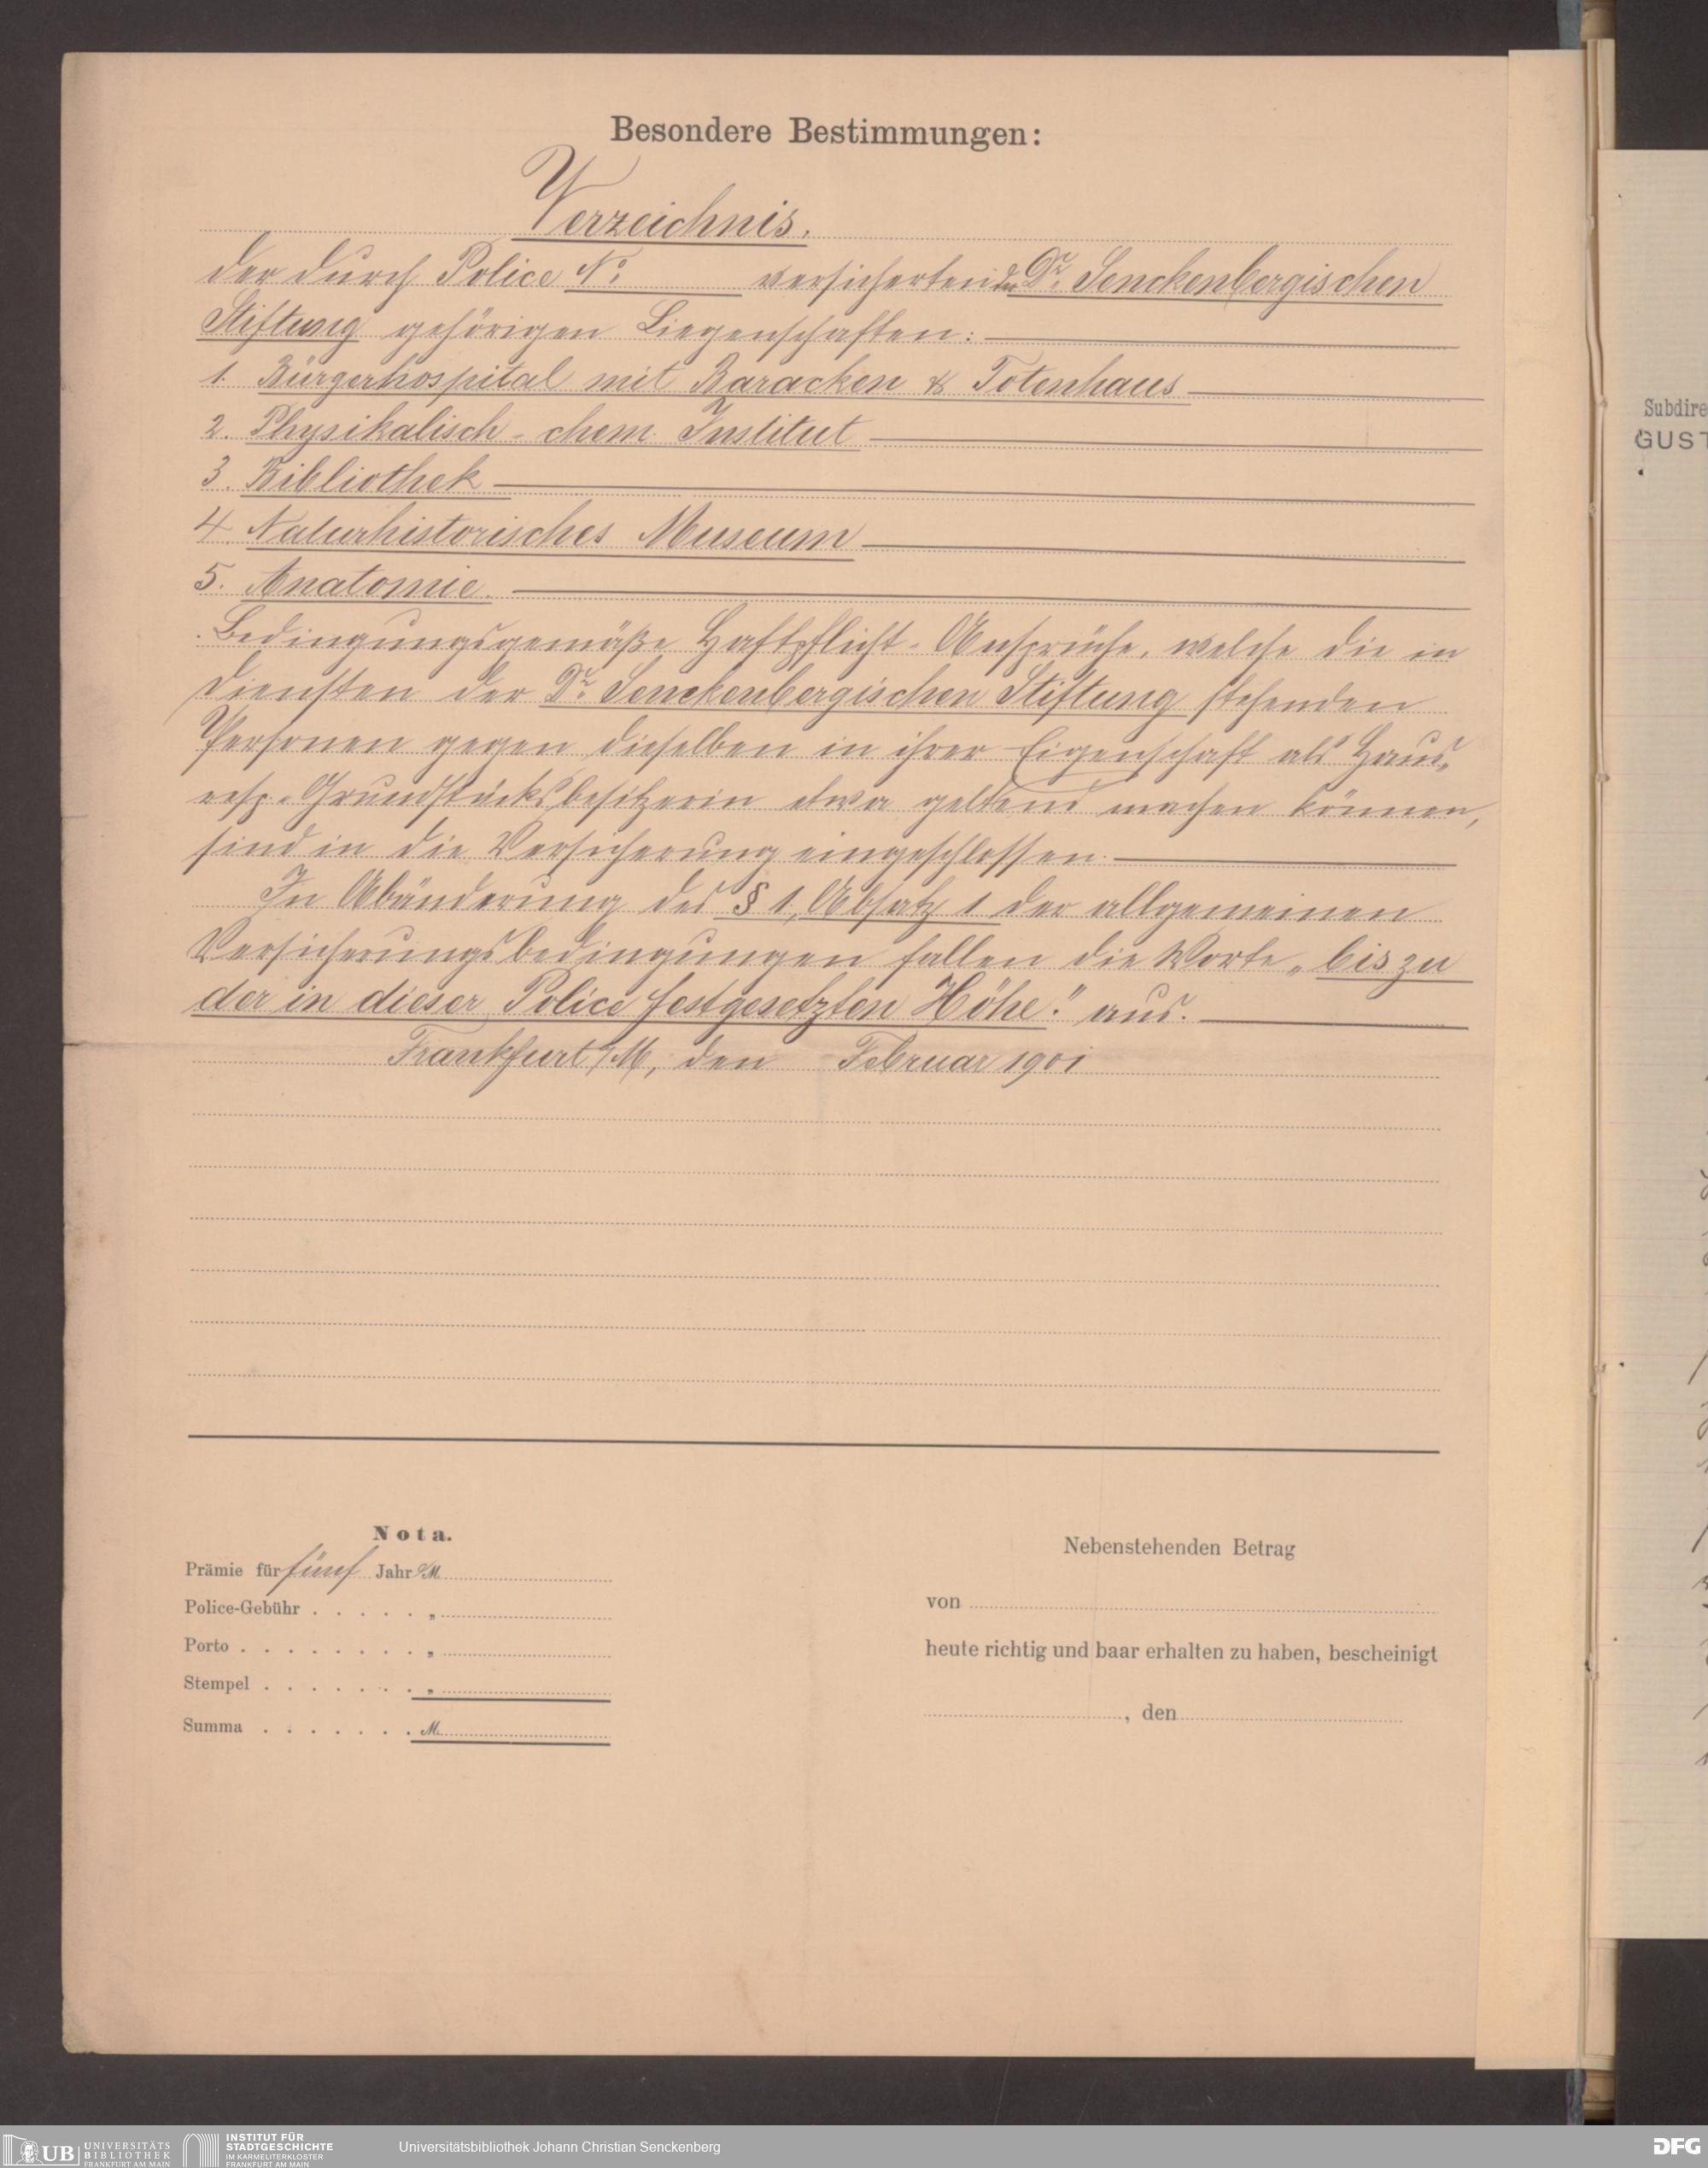 Besondere Bestimmungen:
Verzeichnis.
der durch Police No. versicherten, der Dr. Senckenbergischen
Stiftung gehörigen Liegenschaften:
1. Bürgerhospital mit Baracken & Totenhaus
2. Physikalisch-chem. Institut
3. Bibliothek
4. Naturhistorisches Museum
5. Anatomie.
Bedingungsgemäße Haftpflicht-Ansprüche, welche die in
Diensten der Dr. Senckenbergischen Stiftung stehenden
Personen gegen dieselben in ihrer Eigenschaft als Haus-
resp. Grundstücksbesitzerin etwa geltend machen können,
sind in die Versicherung eingeschlossen.
In Abänderung des § 1, Absatz 1 der allgemeinen
Versicherungsbedingungen fallen die Worte „bis zu
der in dieser Police festgesetzten Höhe." aus.
Frankfurt a/M, den Februar 1901
Nota.
Prämie für fünf Jahr M
Police-Gebühr . . . . . „
Porto . . . . . . . . „
Stempel . . . . . . . „
Summa . . . . . . . M
Nebenstehenden Betrag
von
heute richtig und baar erhalten zu haben, bescheinigt
, den
Subdire
GUST
UB UNIVERSITÄTS
BIBLIOTHEK
FRANKFURT AM MAIN
INSTITUT FÜR
STADTGESCHICHTE
IM KARMELITERKLOSTER
FRANKFURT AM MAIN
Universitätsbibliothek Johann Christian Senckenberg
DFG